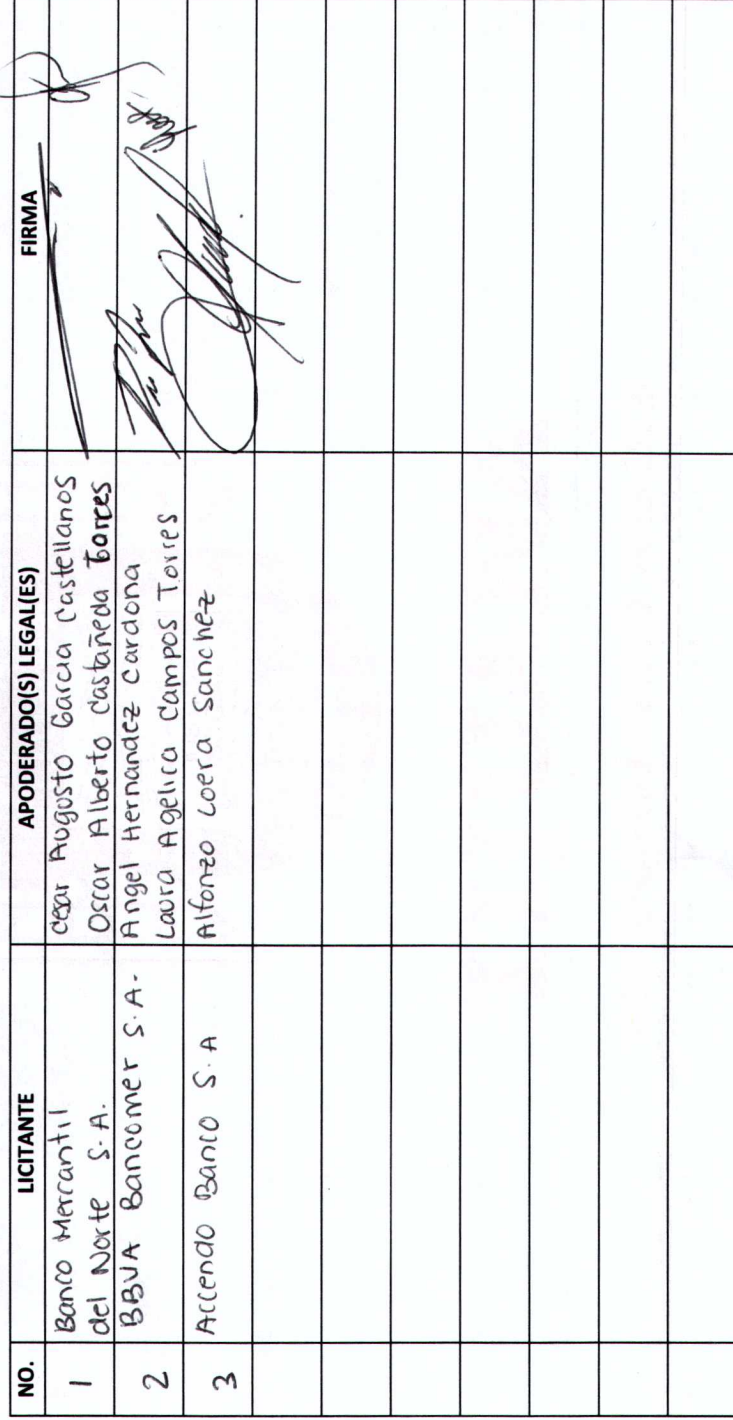 NO. LICITANTE APODERADO(S) LEGAL(ES) FIRMA
1 Banco Mercantil cesar Augusto Garcia Castellanos
del Norte S.A. Oscar Alberto Castañeda Torres
2 BBVA Bancomer S.A. Angel Hernandez Cardona
Laura Agelica Campos Torres
3 Accendo Banco S.A Alfonzo Loera Sanchez